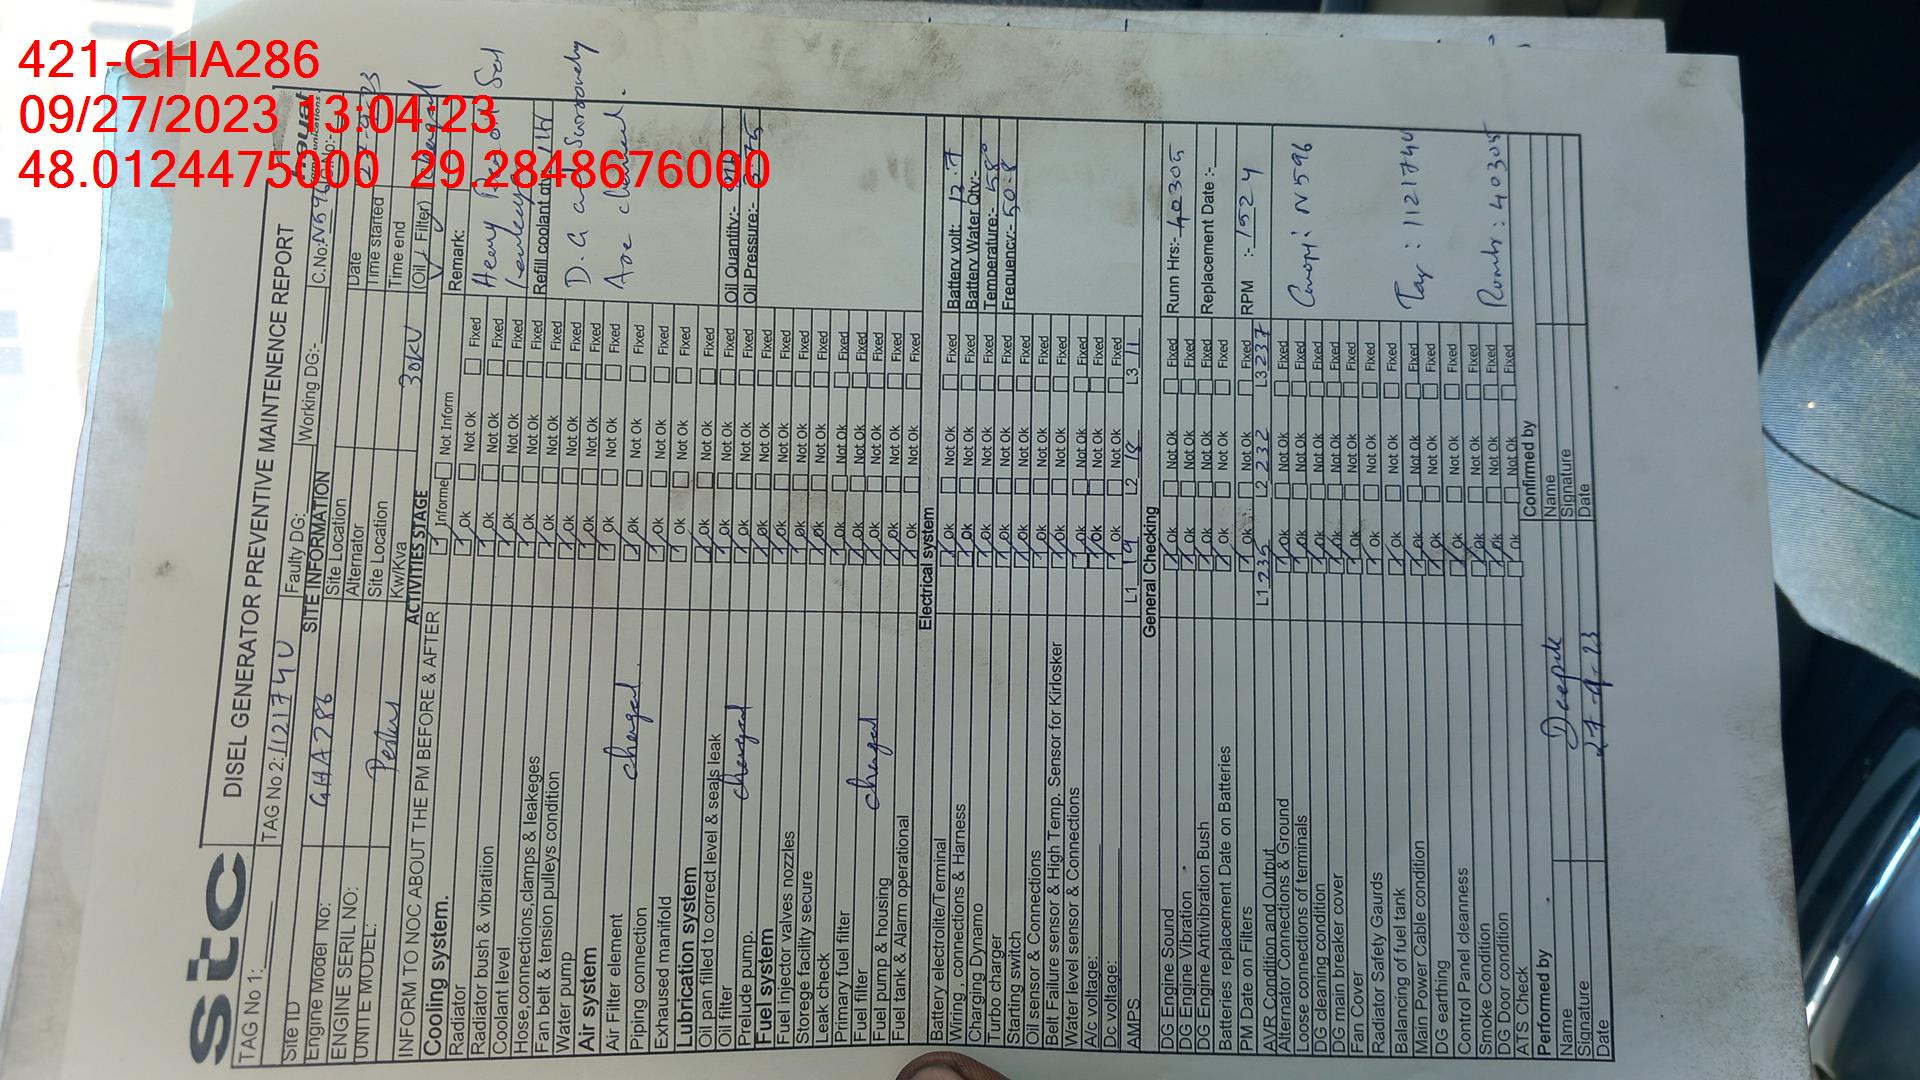 421-GHA286
09/27/2023 13:04:23
48.0124475000 29.2848676000
stc
DISEL GENERATOR PREVENTIVE MAINTENENCE REPORT
TAG No 1: TAG No 2: 1121740 Faulty DG: Working DG:- C.No:N596
SITE INFORMATION
Site ID GHA286 Site Location
Engine Model No: Alternator Date 27-9-23
ENGINE SERIL NO: Site Location Time started
UNITE MODEL: KwKva 30KV Time end
ACTIVITIES STAGE (Oil / Filter)
INFORM TO NOC ABOUT THE PM BEFORE & AFTER Informe Not Inform Remark:
Cooling system.
Radiator Ok Not Ok Fixed Heavy
Radiator bush & vibratiion Ok Not Ok Fixed
Coolant level Ok Not Ok Fixed Refill coolant 1 ltr
Hose,connections,clamps & leakeges Ok Not Ok Fixed
Fan belt & tension pulleys condition Ok Not Ok Fixed D.G and Surroundy
Water pump Ok Not Ok Fixed Are cleaned.
Air system
Air Filter element changed Ok Not Ok Fixed
Piping connection Ok Not Ok Fixed
Exhaused manifold Ok Not Ok Fixed
Lubrication system
Oil pan filled to correct level & seals leak Ok Not Ok Fixed Oil Quantity:-
Oil filter changed Ok Not Ok Fixed Oil Pressure:-
Prelude pump. Ok Not Ok Fixed
Fuel system
Fuel injector valves nozzles Ok Not Ok Fixed
Storege facility secure Ok Not Ok Fixed
Leak check Ok Not Ok Fixed
Primary fuel filter Ok Not Ok Fixed
Fuel filter changed Ok Not Ok Fixed
Fuel pump & housing Ok Not Ok Fixed
Fuel tank & Alarm operational Ok Not Ok Fixed
Electrical system
Battery electrolite/Terminal Ok Not Ok Fixed Battery volt: 13.7
Wiring , connections & Harness Ok Not Ok Fixed Battery Water Qty:-
Charging Dynamo Ok Not Ok Fixed Temperature:- 58°
Turbo charger Ok Not Ok Fixed Frequency:- 50.8
Starting switch Ok Not Ok Fixed
Oil sensor & Connections Ok Not Ok Fixed
Belt Failure sensor & High Temp. Sensor for Kirlosker Ok Not Ok Fixed
Water level sensor & Connections Ok Not Ok Fixed
A/c voltage: Ok Not Ok Fixed
Dc voltage: Ok Not Ok Fixed
AMPS L1 19 L2 18 L3 11
General Checking
DG Engine Sound Ok Not Ok Fixed Runn Hrs:- 40305
DG Engine Vibration Ok Not Ok Fixed
DG Engine Antivibration Bush Ok Not Ok Fixed Replacement Date :-
Batteries replacement Date on Batteries Ok Not Ok Fixed
PM Date on Filters Ok Not Ok Fixed RPM :- 1524
AVR Condition and Output L1 235 L2 232 L3 237
Alternator Connections & Ground Ok Not Ok Fixed
Loose connections of terminals Ok Not Ok Fixed Canopi: N596
DG cleaning condition Ok Not Ok Fixed
DG main breaker cover Ok Not Ok Fixed
Fan Cover Ok Not Ok Fixed
Radiator Safety Gaurds Ok Not Ok Fixed
Balancing of fuel tank Ok Not Ok Fixed Tag : 1121740
Main Power Cable condition Ok Not Ok Fixed
DG earthing Ok Not Ok Fixed
Control Panel cleanness Ok Not Ok Fixed
Smoke Condition Ok Not Ok Fixed Runhr : 40305
DG Door condition Ok Not Ok Fixed
ATS Check Ok Not Ok Fixed
Performed by Confirmed by
Name Deepak Name
Signature Signature
Date 27-9-23 Date